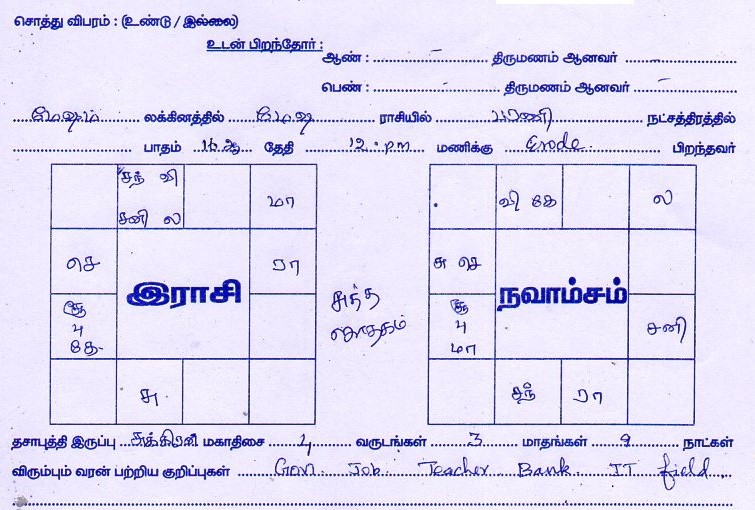 சொத்து விபரம் : (உண்டு / இல்லை)
உடன் பிறந்தோர் :
ஆண் : - திருமணம் ஆனவர் -
பெண் : - திருமணம் ஆனவர் -
மேஷம் லக்கினத்தில் மேஷ ராசியில் பரணி நட்சத்திரத்தில்
பாதம் 16ஆ தேதி 12.pm மணிக்கு Erode. பிறந்தவர்
சந் வி
சனி ல
மா
செ
ரா
சூ
பு
கே
சு
இராசி
சுத்த
ஜாதகம்
வி கே
ல
சு செ
சூ
பு
மா
சனி
சந்
ரா
நவாம்சம்
தசாபுத்தி இருப்பு சுக்கிரன் மகாதிசை 4 வருடங்கள் 3 மாதங்கள் 9 நாட்கள்
விரும்பும் வரன் பற்றிய குறிப்புகள் Gov. Job Teacher Bank IT field